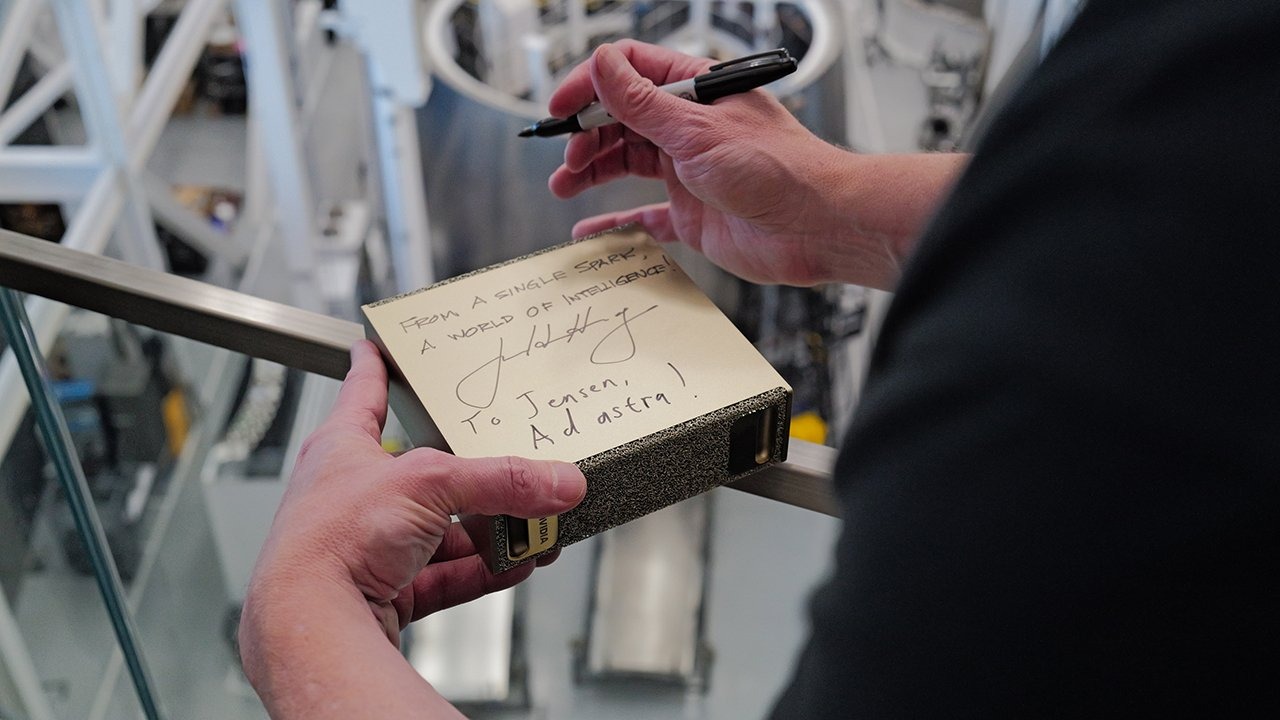 FROM A SINGLE SPARK,
A WORLD OF INTELLIGENCE!
To Jensen,
Ad astra!
NVIDIA